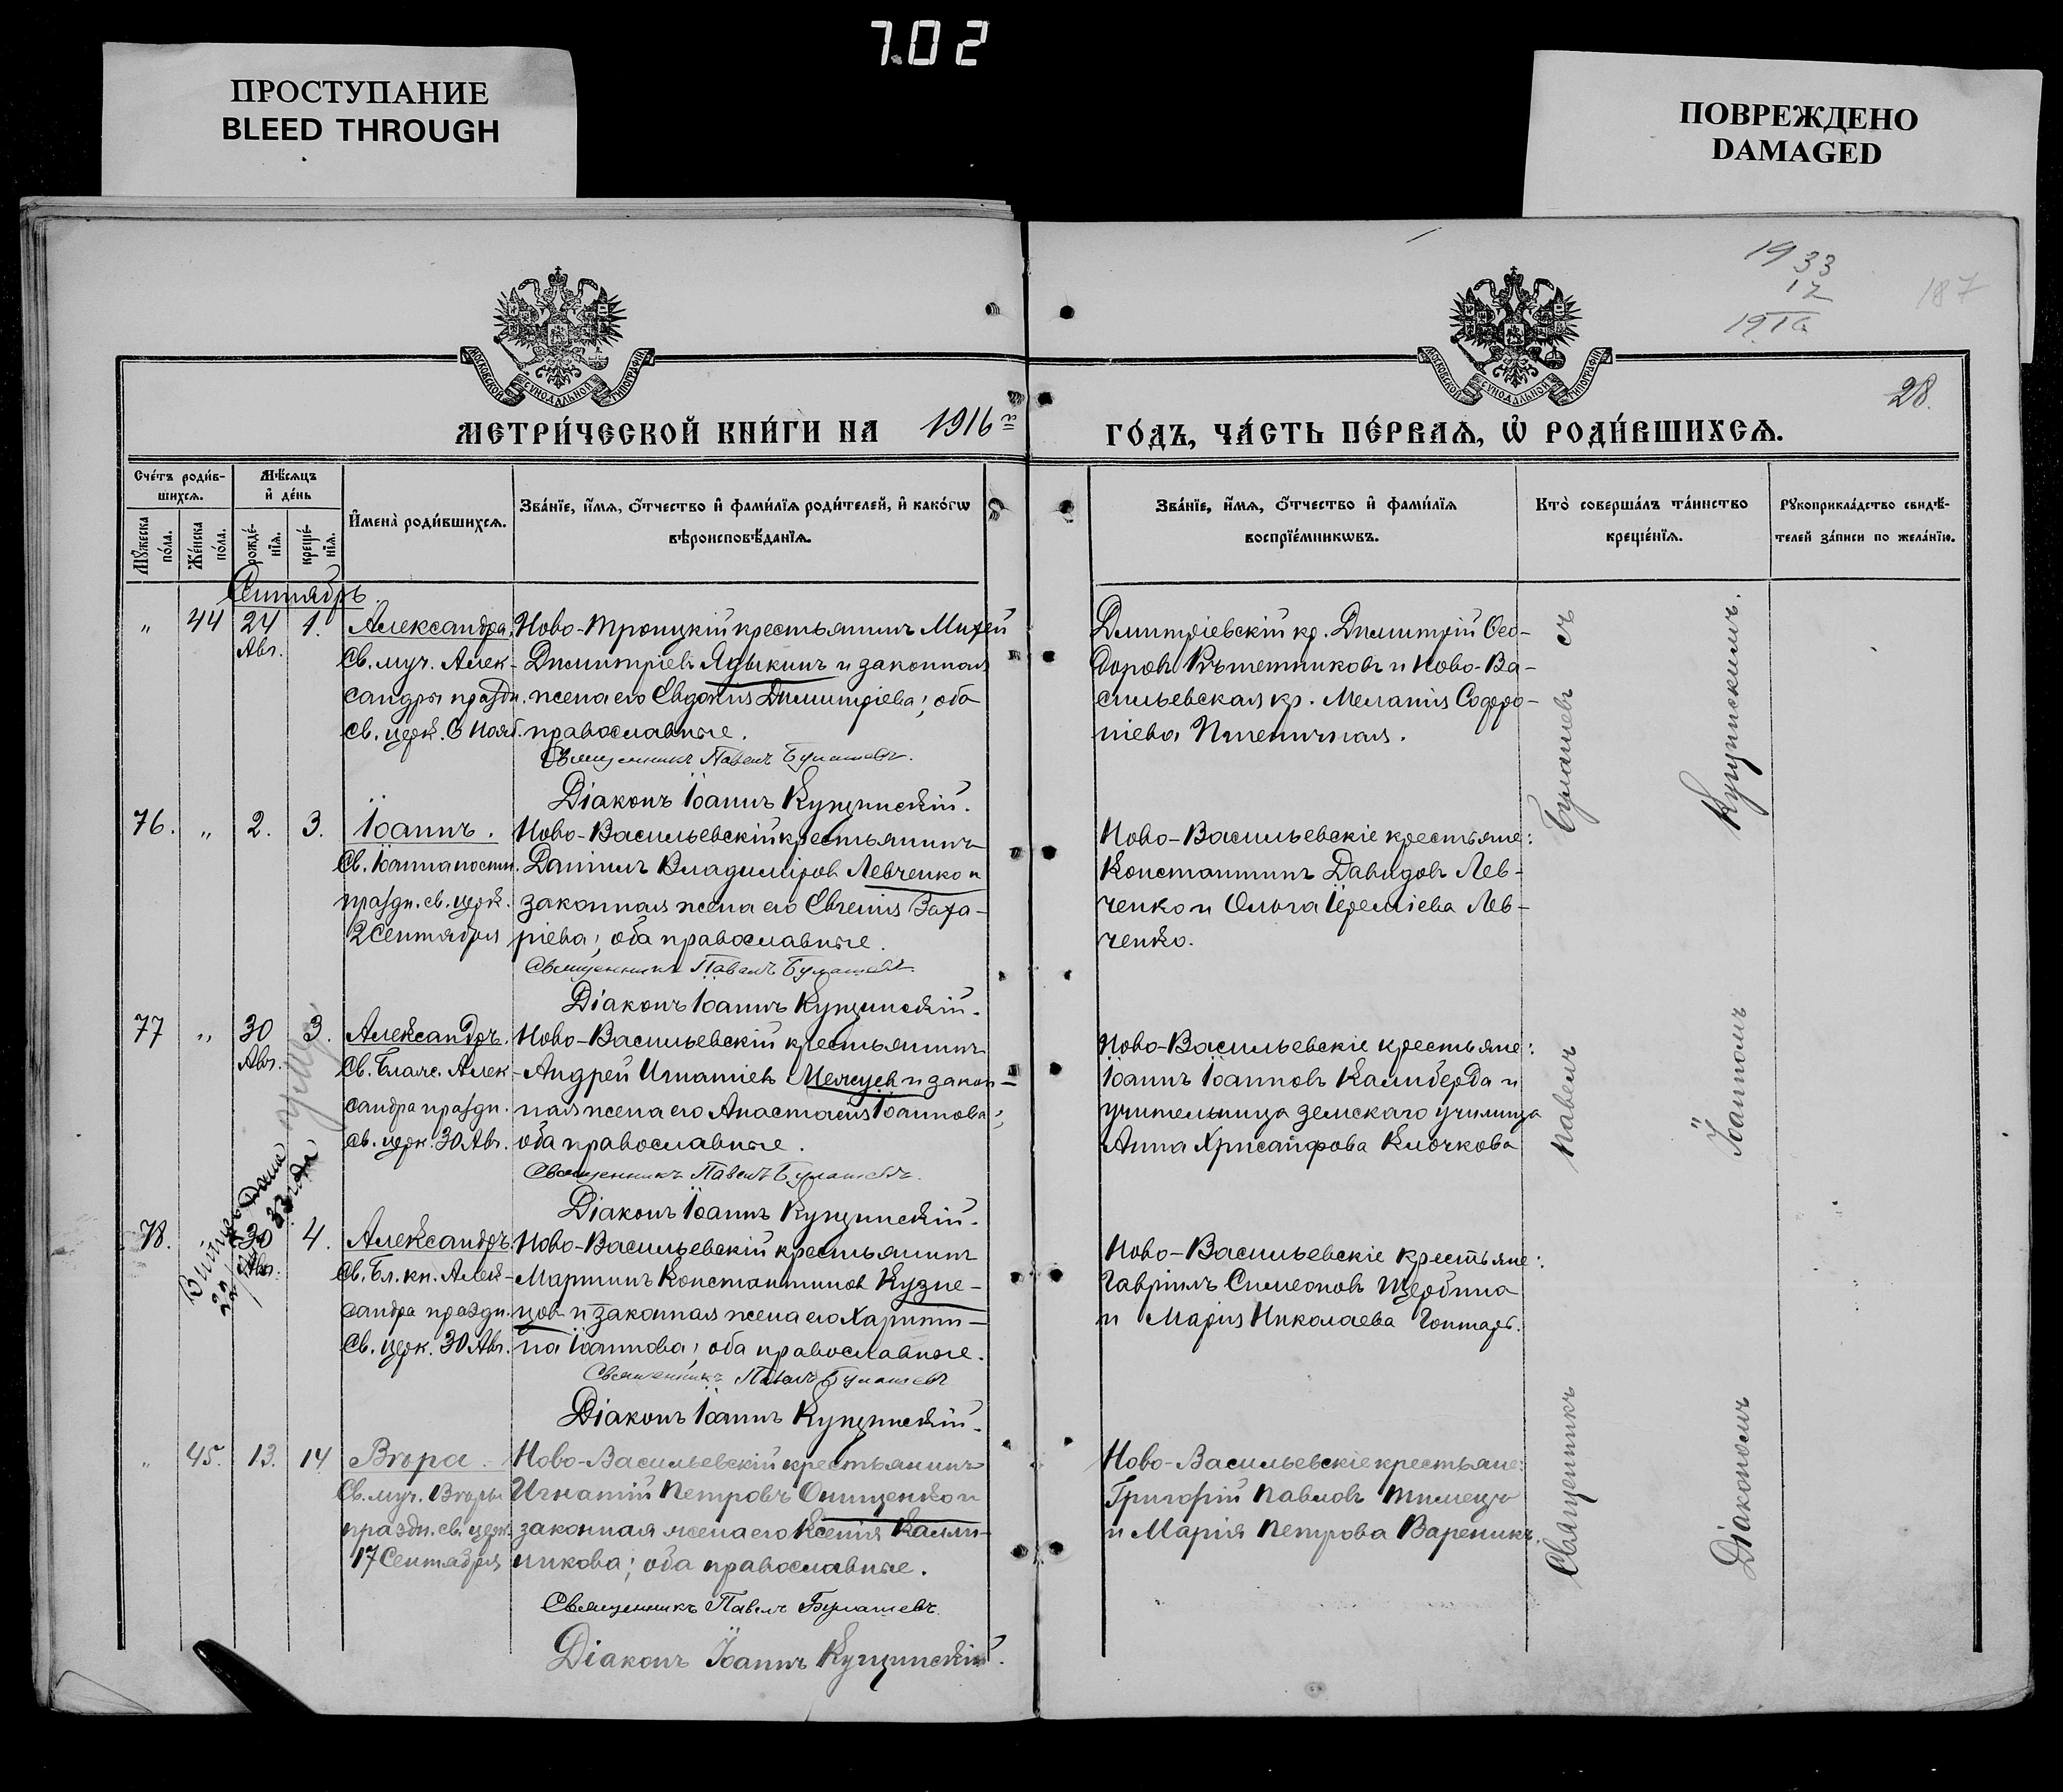 7.02
ПРОСТУПАНИЕ
BLEED THROUGH
ПОВРЕЖДЕНО
DAMAGED
19 33
12
1916
187
28.
МОСКОВСКОЙ СѴНОДАЛЬНОЙ ТИПОГРАФІИ
МОСКОВСКОЙ СѴНОДАЛЬНОЙ ТИПОГРАФІИ
МЕТРИ́ЧЕСКОЙ КНИ́ГИ НА 1916 й
ГО́ДЪ, ЧА́СТЬ ПЕ́РВАѦ, Ѡ҆ РОДИ́ВШИХСѦ.
Сче́тъ роди́в-
шихсѧ.
Мѣ́сѧцъ
и҆ де́нь
Мꙋ́жеска по́ла.
Же́нска по́ла.
рожде́-
нїѧ.
креще́-
нїѧ.
И҆мена̀ роди́вшихсѧ.
Зва́нїе, и҆́мѧ, ѻ҆́тчество и҆ фами́лїѧ роди́телей, и҆ како́гѡ
вѣроисповѣ́данїѧ.
Зва́нїе, и҆́мѧ, ѻ҆́тчество и҆ фами́лїѧ
воспрїе́мникѡвъ.
Кто̀ соверша́лъ та́инство
креще́нїѧ.
Рꙋкоприкла́дство свидѣ́-
телей за́писи по жела́нїю.
Сентябрь.
" 44 24 Авг. 1.
Александра.
Св. муч. Алек-
сандры праздн.
св. церк. 6 Нояб.
Ново-Троицкій крестьянинъ Михей
Димитріевъ Языкинъ и законная
жена его Евдокія Димитріева; оба
православные.
Священникъ Павелъ Булашевъ.
Діаконъ Іоаннъ Купчинскій.
Димитріевскій кр. Димитрій Ѳео-
доровъ Рѣшетниковъ и Ново-Ва-
сильевская кр. Меланія Софро-
ніева Пшеничная.
76. " 2. 3.
Іоаннъ.
Св. Іоанна постн.
праздн. св. церк.
2 Сентября
Ново-Васильевскій крестьянинъ
Даніилъ Владиміровъ Левченко и
законная жена его Евгенія Заха-
ріева; оба православные.
Священникъ Павелъ Булашевъ.
Діаконъ Іоаннъ Купчинскій.
Ново-Васильевскіе крестьяне:
Константинъ Давидовъ Лев-
ченко и Ольга Іереміева Лев-
ченко.
77 " 30 Авг. 3.
Александръ.
Св. Благв. Алек-
сандра праздн.
св. церк. 30 Авг.
Ново-Васильевскій крестьянинъ
Андрей Игнатіевъ Межуев и закон-
ная жена его Анастасія Іоаннова;
оба православные.
Священникъ Павелъ Булашевъ.
Діаконъ Іоаннъ Купчинскій.
Ново-Васильевскіе крестьяне:
Іоаннъ Іоанновъ Калиберда и
учительница земскаго училища
Анна Хрисанфова Клочкова
умер
78. 30 Авг. 4.
Александръ.
Св. Бл. кн. Алек-
сандра праздн.
Св. церк. 30 Авг.
Ново-Васильевскій крестьянинъ
Мартинъ Константинов Кузне-
цовъ и законная жена его Харити-
на Іоаннова; оба православные.
Священникъ Павелъ Булашевъ
Діаконъ Іоаннъ Купчинскій.
Ново-Васильевскіе крестьяне:
Гавріилъ Симеоновъ Щербина
и Марія Николаева Гонтарь.
" 45. 13. 14
Вѣра.
Св. муч. Вѣры
праздн. св. церк.
17 Сентября
Ново-Васильевскій крестьянинъ
Игнатій Петровъ Онищенко и
законная жена его Ксенія Калли-
никова; оба православные.
Священникъ Павелъ Булашевъ.
Діаконъ Іоаннъ Купчинскій.
Ново-Васильевскіе крестьяне:
Григорій Павловъ
и Марія Петрова Вареникъ.
Священникъ Павелъ Булашевъ съ
Діакономъ Іоанномъ Купчинскимъ.